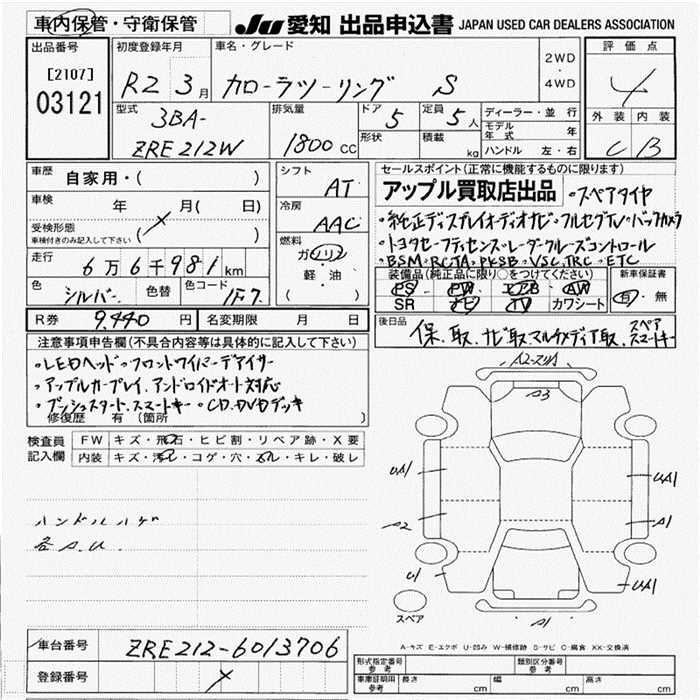 車内保管・守衛保管
JU 愛知 出品申込書 JAPAN USED CAR DEALERS ASSOCIATION
出品番号 [2107] 03121
初度登録年月 R2 3月
車名・グレード カローラツーリング S
2WD・4WD
評価点 4
外装 C 内装 B
型式 3BA-ZRE212W
排気量 1800cc
ドア 5 定員 5人
形状 積載 kg
ディーラー・並行
モデル年式 年
ハンドル 左・右
車歴 自家用・( )
車検 年 月( 日)
受検形態 車検付きのみ記入して下さい ( )
走行 6万6千981km
色 シルバー 色替 色コード 1F7
シフト AT
冷房 AAC
燃料 ガソリン・軽・油 ( )
R券 9,440円 名変期限 月 日
セールスポイント(正常に機能するものに限ります)
アップル買取店出品 •スペアタイヤ
•純正ディスプレイオーディオナビ•フルセグTV•バックカメラ
•トヨタセーフティセンス•レーダークルーズコントロール
•BSM•RCTA•PKSB•VSC,TRC•ETC
装備品(純正品に限り○をつけてください)
PS PW エアB AW
SR ナビ TV カワシート
新車保証書 有・無
後日品 保、取、ナビ取マルチメディア取、スペアスマートキー
注意事項申告欄(不具合内容等は具体的に記入して下さい)
•LEDヘッド•フロントワイパーデアイサー
•アップルカープレイ、アンドロイドオート対応
•プッシュスタート、スマートキー•CD、DVDデッキ
修復歴 有(箇所 )
検査員記入欄
FW キズ・飛石・ヒビ割・リペア跡・X要
内装 キズ・汚れ・コゲ・穴・スレ・キレ・破レ
ハンドルハゲ
各A.U.
A2-スリA
A3
UA1
UA1
A2
A1
U1
UA1
A1
スペア
A-キズ E-エクボ U-凹み W-補修跡 S-サビ C-腐食 XX-交換済
車台番号 ZRE212-6013706
登録番号
形式指定番号 参考 類別区分番号 参考
車庫証明用 参考 長さ cm 幅 cm 高さ cm